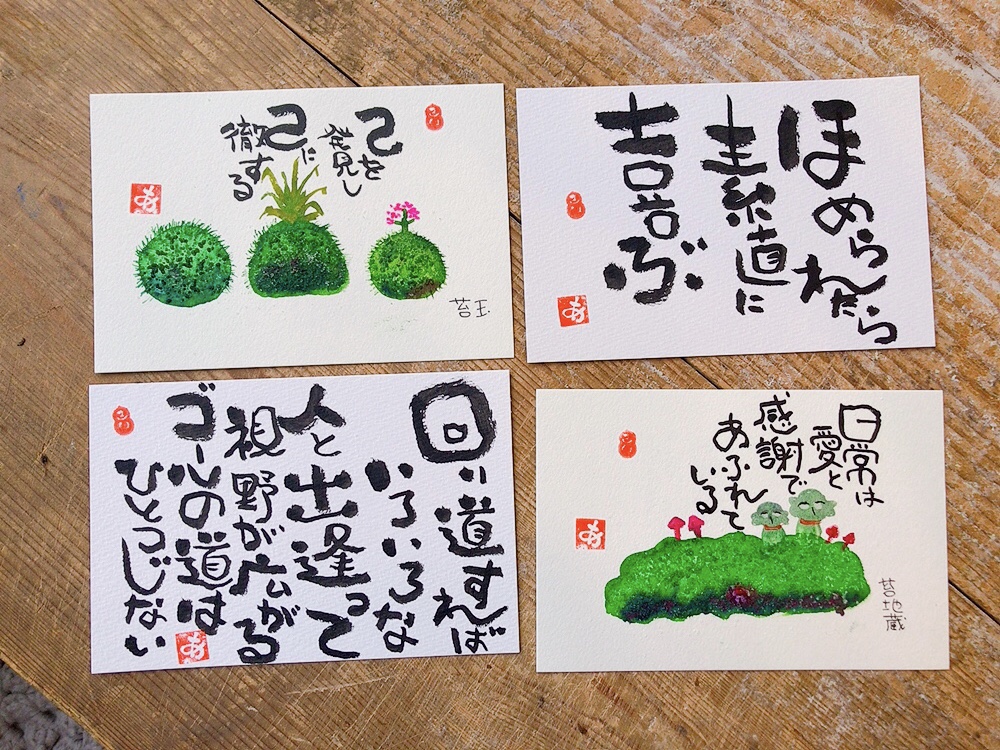 己を
発見し
己に
徹する
苔玉
ほめられたら
素直に
喜ぶ
回り道すれば
いろいろな
人と出逢って
視野が広がる
ゴールの道は
ひとつじない
日常は
愛と
感謝で
あふれて
いる
苔地蔵